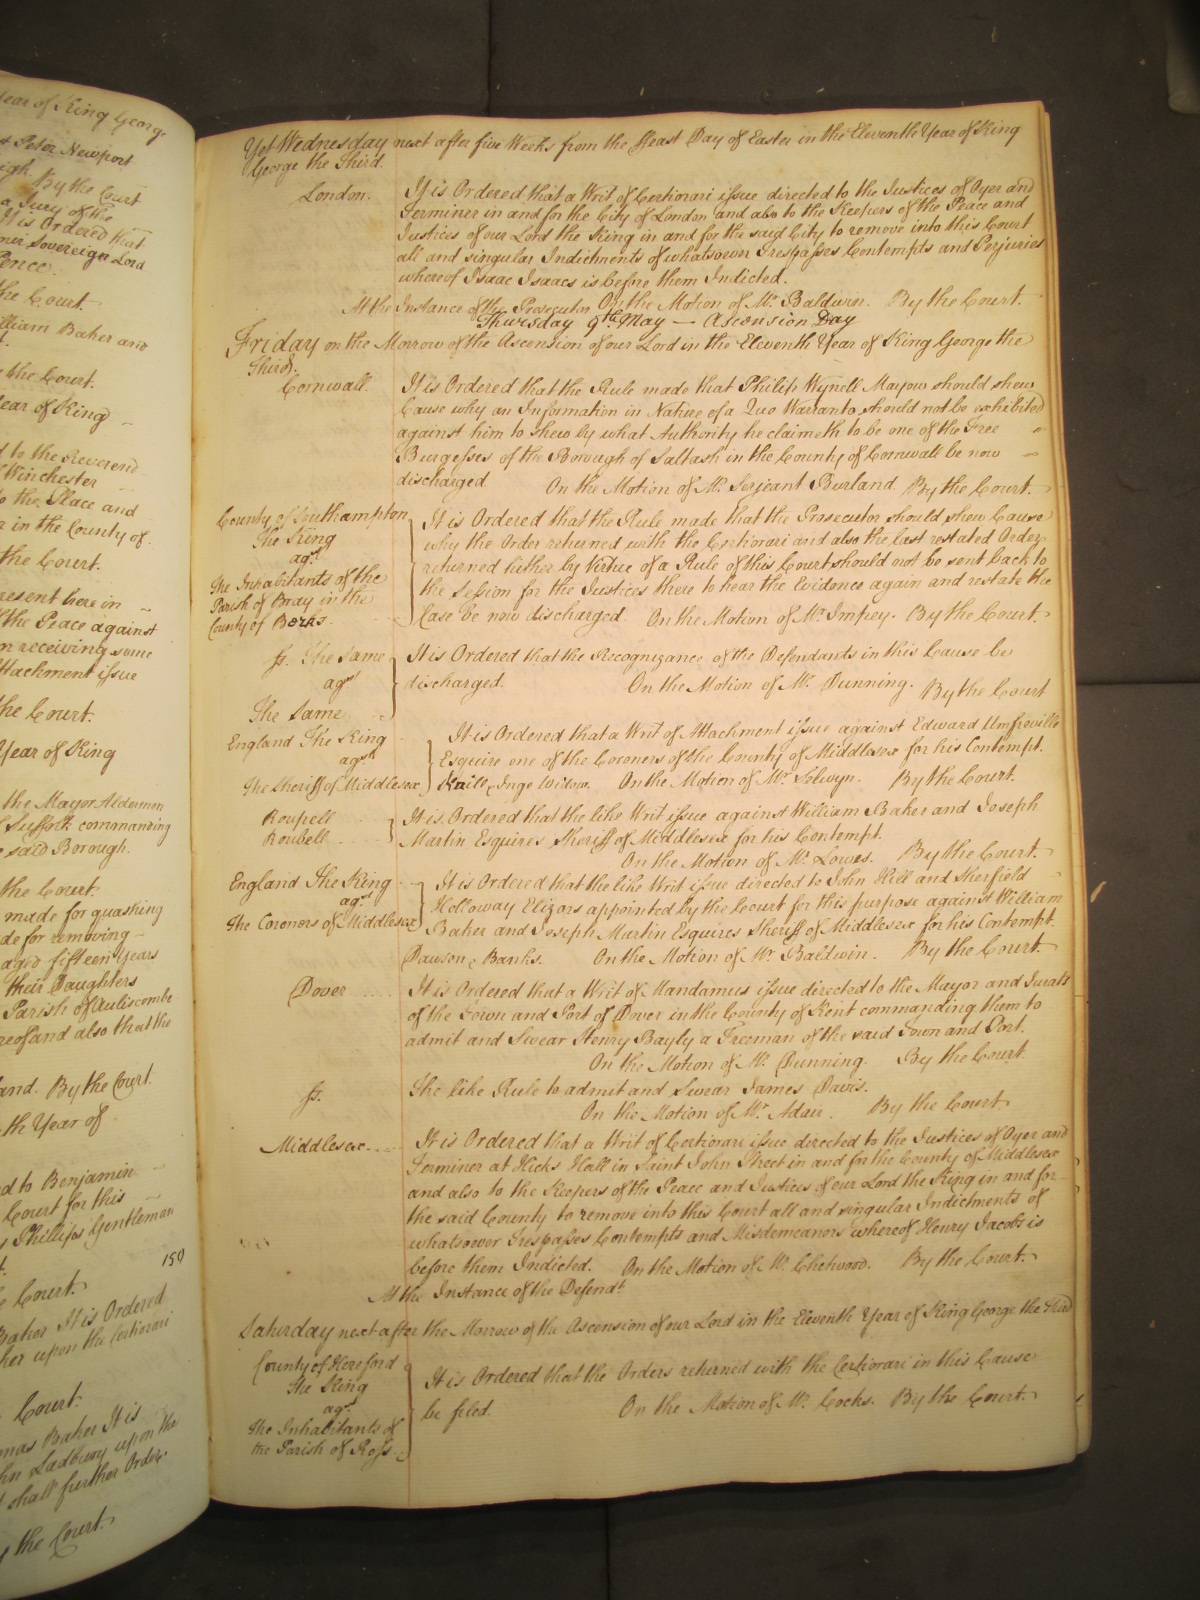 Year of King George
& Peter Newport
By the Court
a Jury of the
It is Ordered that
Sovereign Lord
the Court
William Baker and
the Court.
Year of King
to the Reverend
Winchester
the Place and
in the County of
the Court.
present here in
the Peace against
receiving some
Attachment issue
the Court.
Year of King
the Mayor Aldermen
of Suffolk commanding
said Borough.
the Court.
made for quashing
for removing
aged fifteen Years
their Daughters
Parish of Auliscombe
and also that the
By the Court.
th Year of
to Benjamin
Court for this
Phillips Gentleman
159
Court.
Baker It is Ordered
upon the Certiorari
Court.
Baker It is
Ladbury upon the
shall further Order
the Court.
Yet Wednesday next after five Weeks from the Feast Day of Easter in the Eleventh Year of King
George the Third.
London. It is Ordered that a Writ of Certiorari issue directed to the Justices of Oyer and
Terminer in and for the City of London and also to the Keepers of the Peace and
Justices of our Lord the King in and for the said City to remove into this Court
all and singular Indictments of whatsoever Trespasses Contempts and Perjuries
whereof Isaac Isaacs is before them Indicted.
At the Instance of the Prosecutor On the Motion of Mr. Baldwin. By the Court.
Thursday 9th May — Ascension Day
Friday on the Morrow of the Ascension of our Lord in the Eleventh Year of King George the
Third.
Cornwall It is Ordered that the Rule made that Philip Wynell Mayow should shew
Cause why an Information in Nature of a Quo Warranto should not be exhibited
against him to shew by what Authority he claimeth to be one of the Free
Burgesses of the Borough of Saltash in the County of Cornwall be now
discharged On the Motion of Mr. Serjeant Burland. By the Court.
County of Southampton
The King
agst
The Inhabitants of the
Parish of Bray in the
County of Berks
It is Ordered that the Rule made that the Prosecutor should shew Cause
why the Order returned with the Certiorari and also the last restated Order
returned hither by Virtue of a Rule of this Court should not be sent back to
the Session for the Justices there to hear the Evidence again and restate the
Case be now discharged. On the Motion of Mr. Impey. By the Court.
Js. The Same
agst
The Same
It is Ordered that the Recognizance of the Defendants in this Cause be
discharged. On the Motion of Mr. Dunning. By the Court
England The King
agst
The Sheriff of Middlesex
It is Ordered that a Writ of Attachment issue against Edward Umfreville
Esquire one of the Coroners of the County of Middlesex for his Contempt.
Inge Widow. On the Motion of Mr. Selwyn. By the Court.
Roupell
Roubell
It is Ordered that the like Writ issue against William Baker and Joseph
Martin Esquires Sheriff of Middlesex for his Contempt.
On the Motion of Mr. Lowes. By the Court.
England The King
agst
The Coroners of Middlesex
It is Ordered that the like Writ issue directed to John Hill and Sherfield
Holloway Elizors appointed by the Court for this purpose against William
Baker and Joseph Martin Esquires Sheriff of Middlesex for his Contempt.
Dawson & Banks. On the Motion of Mr. Baldwin. By the Court.
Dover It is Ordered that a Writ of Mandamus issue directed to the Mayor and Jurats
of the Town and Port of Dover in the County of Kent commanding them to
admit and Swear Henry Bayly a Freeman of the said Town and Port.
On the Motion of Mr. Dunning. By the Court.
Js. The like Rule to admit and Swear James Davis.
On the Motion of Mr. Adair. By the Court
Middlesex It is Ordered that a Writ of Certiorari issue directed to the Justices of Oyer and
Terminer at Hicks Hall in Saint John Street in and for the County of Middlesex
and also to the Keepers of the Peace and Justices of our Lord the King in and for
the said County to remove into this Court all and singular Indictments of
whatsoever Trespasses Contempts and Misdemeanors whereof Henry Jacobs is
before them Indicted. On the Motion of Mr. Chetwood. By the Court.
At the Instance of the Defendt.
Saturday next after the Morrow of the Ascension of our Lord in the Eleventh Year of King George the Third
County of Hereford
The King
agst
The Inhabitants of
the Parish of Ross
It is Ordered that the Orders returned with the Certiorari in this Cause
be filed. On the Motion of Mr. Cocks. By the Court.